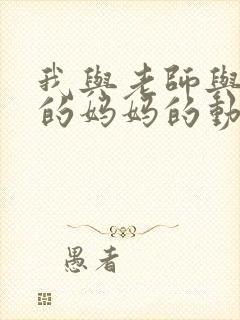 我與老師與
的媽媽的動
愚者